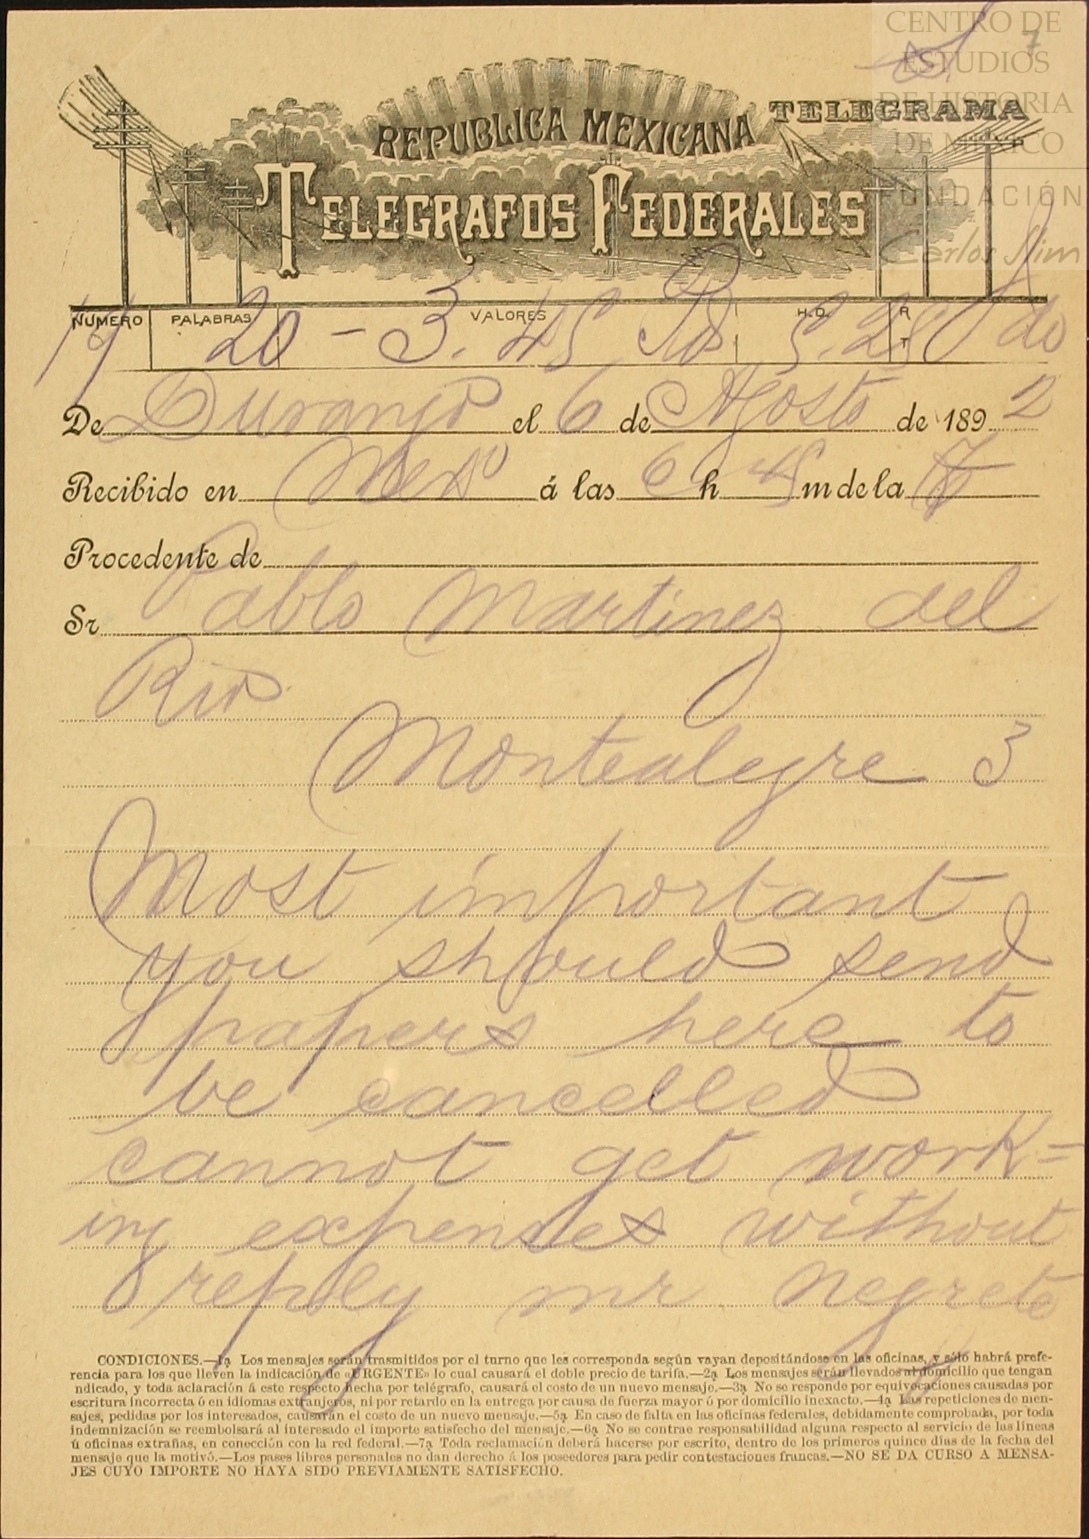 CENTRO DE
ESTUDIOS
DE HISTORIA
DE MÉXICO
FUNDACIÓN
Carlos Slim
7
REPUBLICA MEXICANA
TELEGRAMA
TELEGRAFOS FEDERALES
NÚMERO PALABRAS VALORES H.D. R T
17 20 - 3.45 5.25
De Durango el 6 de Agosto de 1892
Recibido en Mexº á las 6 h 45 m de la
Procedente de
Sr Pablo Martinez del
Rio
Montealegre 3
Most important
you should send
papers here to
be cancelled
cannot get work=
ing expenses without
reply mr. Negrete
CONDICIONES.—1ª Los mensajes serán trasmitidos por el turno que les corresponda según vayan depositándose en las oficinas, y sólo habrá prefe-
rencia para los que lleven la indicación de «URGENTE» lo cual causará el doble precio de tarifa.—2ª Los mensajes serán llevados al domicilio que tengan
ndicado, y toda aclaración á este respecto hecha por telégrafo, causará el costo de un nuevo mensaje.—3ª No se responde por equivocaciones causadas por
escritura incorrecta ó en idiomas extranjeros, ni por retardo en la entrega por causa de fuerza mayor ó por domicilio inexacto.—4ª Las repeticiones de men-
sajes, pedidas por los interesados, causarán el costo de un nuevo mensaje.—5ª En caso de falta en las oficinas federales, debidamente comprobada, por toda
indemnización se reembolsará al interesado el importe satisfecho del mensaje.—6ª No se contrae responsabilidad alguna respecto al servicio de las líneas
ú oficinas extrañas, en conección con la red federal.—7ª Toda reclamación deberá hacerse por escrito, dentro de los primeros quince dias de la fecha del
mensaje que la motivó.—Los pases libres personales no dan derecho á los poseedores para pedir contestaciones francas.—NO SE DA CURSO A MENSA-
JES CUYO IMPORTE NO HAYA SIDO PREVIAMENTE SATISFECHO.